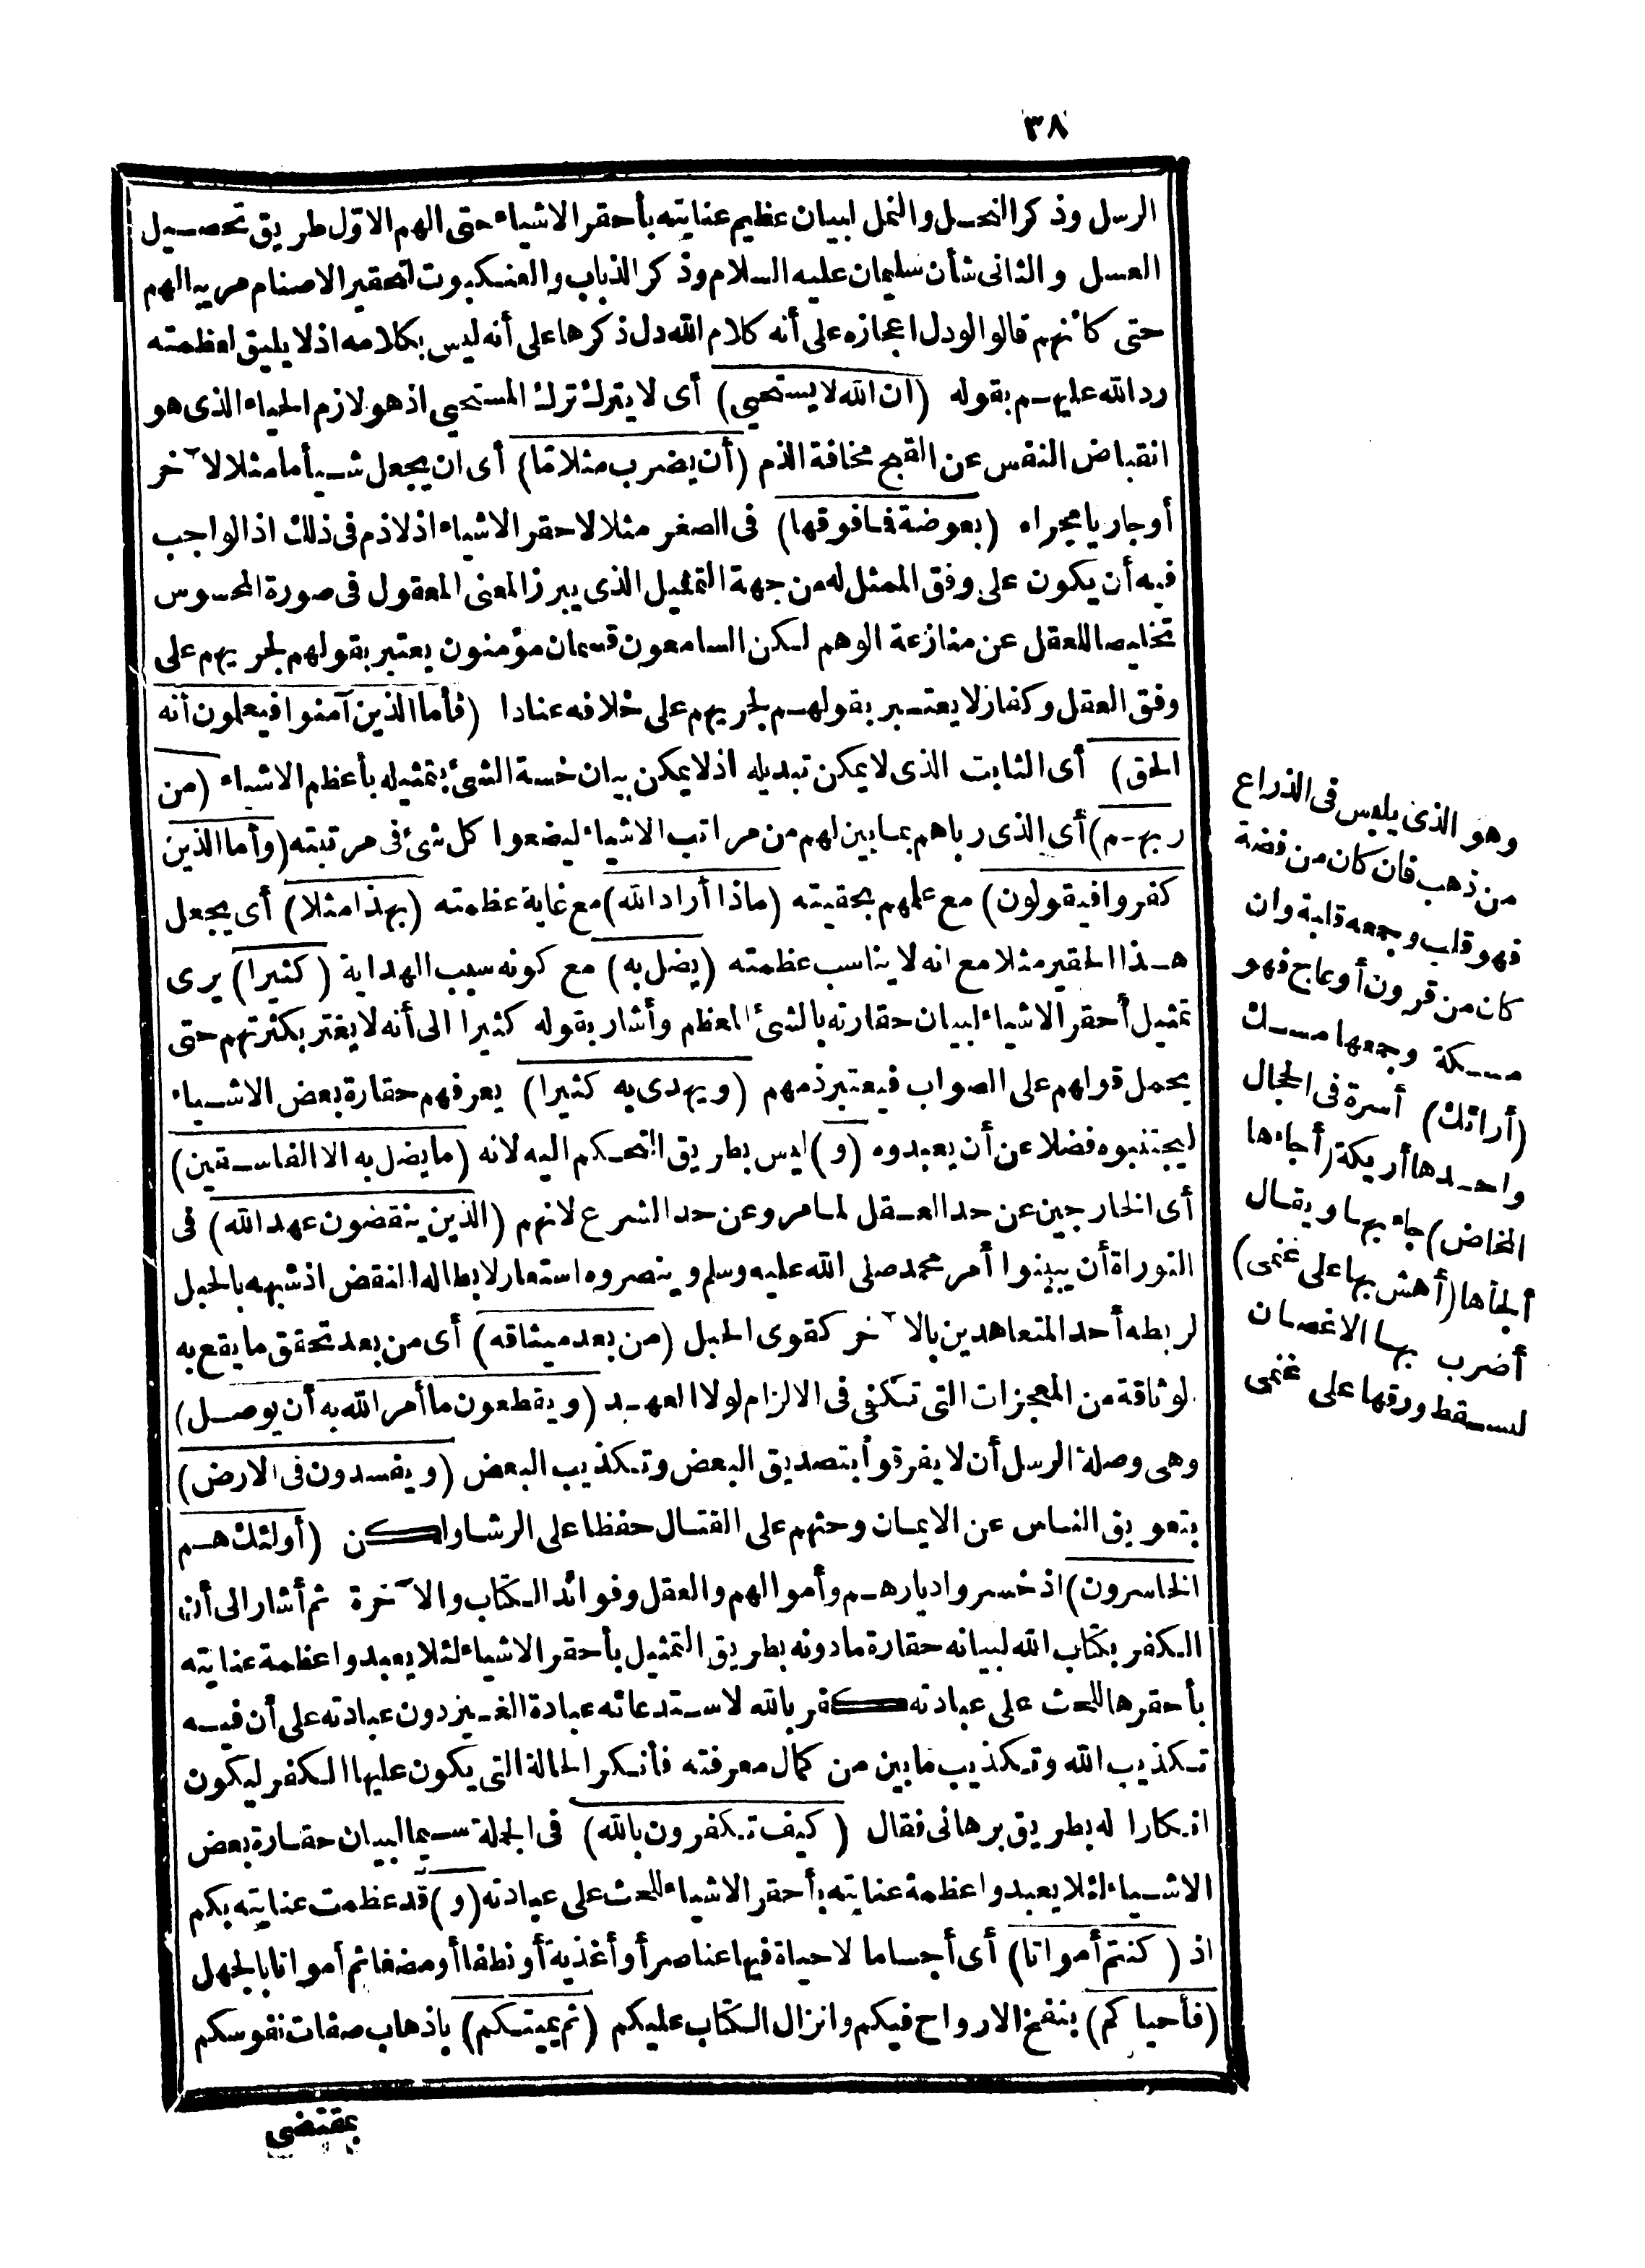 ٣٨
الرسل وذكر النحل والنمل لبيان عظيم عنايته بأحقر الاشياء حتى الهم الاوّل طريق تحصيل
العسل والثانى شأن سليمان عليه السلام وذكر الذباب والعنكبوت لتحقير الاصنام مريبا لهم
حتى كأنهم قالوا لودل اعجازه على أنه كلام الله دل ذكرها على أنه ليس بكلامه اذ لا يليق لعظمته
رد الله عليهم بقوله (ان الله لا يستحيي) أى لا يترك ترك المستحيي اذ هو لازم الحياء الذى هو
انقباض النفس عن القبح مخافة الذم (أن يضرب مثلا مّا) أى ان يجعل شيأ ما مثلا لا خر
أو جاريا مجراه (بعوضة فما فوقها) فى الصغر مثلا لاحقر الاشياء اذ لا ذم فى ذلك اذ الواجب
فيه أن يكون على وفق الممثل له من جهة التمثيل الذى يبرز المعنى المعقول فى صورة المحسوس
تخليصا للعقل عن منازعة الوهم لكن السامعون قسمان مؤمنون يعتبر بقولهم لجريهم على
وفق العقل وكفار لا يعتبر بقولهم لجريهم على خلافه عنادا (فأما الذين آمنوا فيعلمون أنه
الحق) أى الثابت الذى لا يمكن تبديله اذ لا يمكن بيان خسة الشئ بتمثيله بأعظم الاشياء (من
ربهم) أى الذى رباهم بما بين لهم من مراتب الاشياء ليضعوا كل شئ فى مرتبته (وأما الذين
كفروا فيقولون) مع علمهم بحقيته (ماذا أراد الله) مع غاية عظمته (بهذا مثلا) أى يجعل
هذا الحقير مثلا مع انه لا يناسب عظمته (يضل به) مع كونه سبب الهداية (كثيرا) يرى
تمثيل أحقر الاشياء لبيان حقارته بالشئ المعظم وأشار بقوله كثيرا الى أنه لا يغتر بكثرتهم حتى
يحمل قولهم على الصواب فيعتبر ذمهم (ويهدى به كثيرا) يعرفهم حقارة بعض الاشياء
ليجتنبوه فضلا عن أن يعبدوه (و) ليس بطريق التحكم اليه لانه (ما يضل به الا الفاسقين)
أى الخارجين عن حد العقل لما مر وعن حد الشرع لانهم (الذين ينقضون عهد الله) فى
التوراة أن يبينوا أمر محمد صلى الله عليه وسلم وينصروه استعار لابطاله النقض اذ شبهه بالحبل
لربطه أحد المتعاهدين بالا خر كقوى الحبل (من بعد ميثاقه) أى من بعد تحقق ما يقع به
لوثاقة من المعجزات التى تكفى فى الالزام لولا العهد (ويقطعون ما أمر الله به أن يوصل)
وهى وصلة الرسل أن لا يفرقوا بتصديق البعض وتكذيب البعض (ويفسدون فى الارض)
بتعويق الناس عن الايمان وحثهم على القتال حفظا على الرشا ولكن (أولئك هم
الخاسرون) اذ خسروا ديارهم وأموالهم والعقل وفوائد الكتاب والا خرة ثم أشار الى أن
الكفر بكتاب الله لبيانه حقارة ما دونه بطريق التمثيل بأحقر الاشياء لئلا يعبدوا عظمة عنايته
بأحقرها للحث على عبادته كفر بالله لاستدعائه عبادة الغير دون عبادته على أن فيه
تكذيب الله وتكذيب ما بين من كمال معرفته فأنكر الحالة التى يكون عليها الكفر ليكون
انكارا له بطريق برهانى فقال (كيف تكفرون بالله) فى الجملة سيما لبيان حقارة بعض
الاشياء لئلا يعبدوا عظمة عنايته بأحقر الاشياء للحث على عبادته (و) قد عظمت عنايته بكم
اذ (كنتم أمواتا) أى أجساما لا حياة فيها عناصر أو أغذية أو نطفا أو مضغا ثم أمواتا بالجهل
(فأحياكم) بنفخ الارواح فيكم وانزال الكتاب عليكم (ثم يميتكم) باذهاب صفات نفوسكم
بمقتضى
وهو الذى يلبس فى الذراع
من ذهب فان كان من فضة
فهو قلب وجمعه قلبة وان
كان من قرون أو عاج فهو
مسكة وجمعها مسك
(أرائك) أسرة فى الحجال
واحدها أريكة (أجاءها
المخاض) جاء بها ويقال
ألجأها (أهش بها على غنمى)
أضرب بها الاغصان
ليسقط ورقها على غنمى